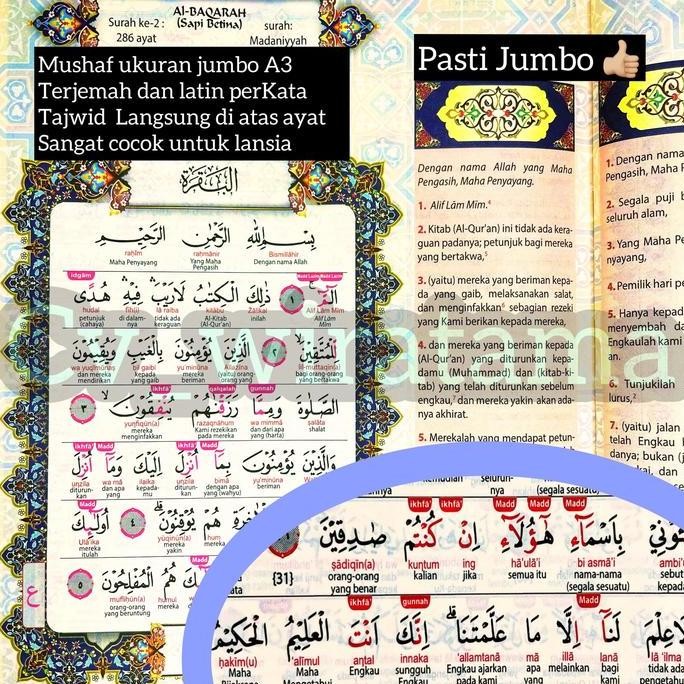 Al-BAQARAH
(Sapi Betina)
Surah ke-2 :
286 ayat
surah:
Madaniyyah
Mushaf ukuran jumbo A3
Terjemah dan latin perKata
Tajwid Langsung di atas ayat
Sangat cocok untuk lansia
Pasti Jumbo 👍🏼
البقرة
بِسْمِ اللّٰهِ الرَّحْمٰنِ الرَّحِيْمِ
raḥīm raḥmānir Bismillāhir
Maha Penyayang Yang Maha Pengasih Dengan nama Allah
idgām Mad Lazim Mad Lazim
الۤمّۤ ۚ ١ ذٰلِكَ الْكِتٰبُ لَا رَيْبَ ۛ فِيْهِ ۛ هُدًى
hudal fīh(i) lā raiba kitābu Żālikal Alif Lām Mīm
petunjuk (cahaya) di dalam-nya tidak ada keraguan Al-Kitab (Al-Qur'an) inilah Alif Lām Mīm
لِّلْمُتَّقِيْنَ ۙ ٢ الَّذِيْنَ يُؤْمِنُوْنَ بِالْغَيْبِ وَيُقِيْمُوْنَ
wa yuqīmūnaṣ bil gaibi yu'minūna Allażīna lil-muttaqīn(a)
dan mereka mendirikan kepada yang gaib mereka beriman (yaitu) orang yang bagi orang-orang yang bertakwa
ikhfā' qalqalah gunnah
الصَّلٰوةَ وَمِمَّا رَزَقْنٰهُمْ يُنْفِقُوْنَ ۙ ٣
yunfiqūn(a) razaqnāhum wa mimmā ṣalāta
mereka menginfakkan Kami rezekikan pada mereka dan dari apa yang (harta) shalat
ikhfā' Mad ikhfā' Mad
وَالَّذِيْنَ يُؤْمِنُوْنَ بِمَآ اُنْزِلَ اِلَيْكَ وَمَآ اُنْزِلَ
unzila wa mā ilaika unzila bimā yu'minūna Wallażīna
diturun-kan dan apa yang kepada-mu diturun-kan dengan apa yang (wahyu) beriman Dan orang yang
Mad
هُمْ يُوْقِنُوْنَ ۗ ٤ اُولٰۤىِٕكَ
Ulā'ika yūqinūn(a) hum
mereka itulah yakin mereka
هُمُ الْمُفْلِحُوْنَ ٥
mufliḥūn(a) humul
orang-orang yang beruntung mereka
ع
Dengan nama Allah yang Maha
Pengasih, Maha Penyayang.
1. Alif Lām Mīm.⁴
2. Kitab (Al-Qur'an) ini tidak ada kera-
guan padanya; petunjuk bagi mereka
yang bertakwa,⁵
3. (yaitu) mereka yang beriman kepa-
da yang gaib, melaksanakan salat,
dan menginfakkan⁶ sebagian rezeki
yang Kami berikan kepada mereka,
4. dan mereka yang beriman kepada
(Al-Qur'an) yang diturunkan kepa-
damu (Muhammad) dan (kitab-ki-
tab) yang telah diturunkan sebelum
engkau,⁷ dan mereka yakin akan ada-
nya akhirat.
5. Merekalah yang mendapat petun-
1. Dengan nama
Pengasih, Maha P
2. Segala puji b
seluruh alam,
3. Yang Maha Pe
nyayang,
4. Pemilik hari pe
5. Hanya kepad
menyembah da
Engkaulah kami
an.
6. Tunjukilah
lurus,²
7. (yaitu) jalan
telah Engkau
danya; bukan (j
seluruh-nya (segala sesuatu)
ikhfā' ikhfā' Mad Mad Mad
بِاَسْمَاۤءِ هٰٓؤُلَاۤءِ اِنْ كُنْتُمْ صٰدِقِيْنَ
ṣādiqīn(a) kuntum ing hā'ulā'i bi asmā'i
{31} orang-orang yang benar kalian jika semua itu nama-nama (segala sesuatu)
ikhfā' gunnah Mad
لَنَآ اِلَّا مَا عَلَّمْتَنَا ۗ اِنَّكَ اَنْتَ الْعَلِيْمُ الْحَكِيْمُ
ḥakīm(u) 'alīmul antal innaka 'allamtanā mā illā lanā lā 'ilma
Maha Maha engkau sungguh Engkau Engkau ajarkan apa melainkan bagi tidak ada